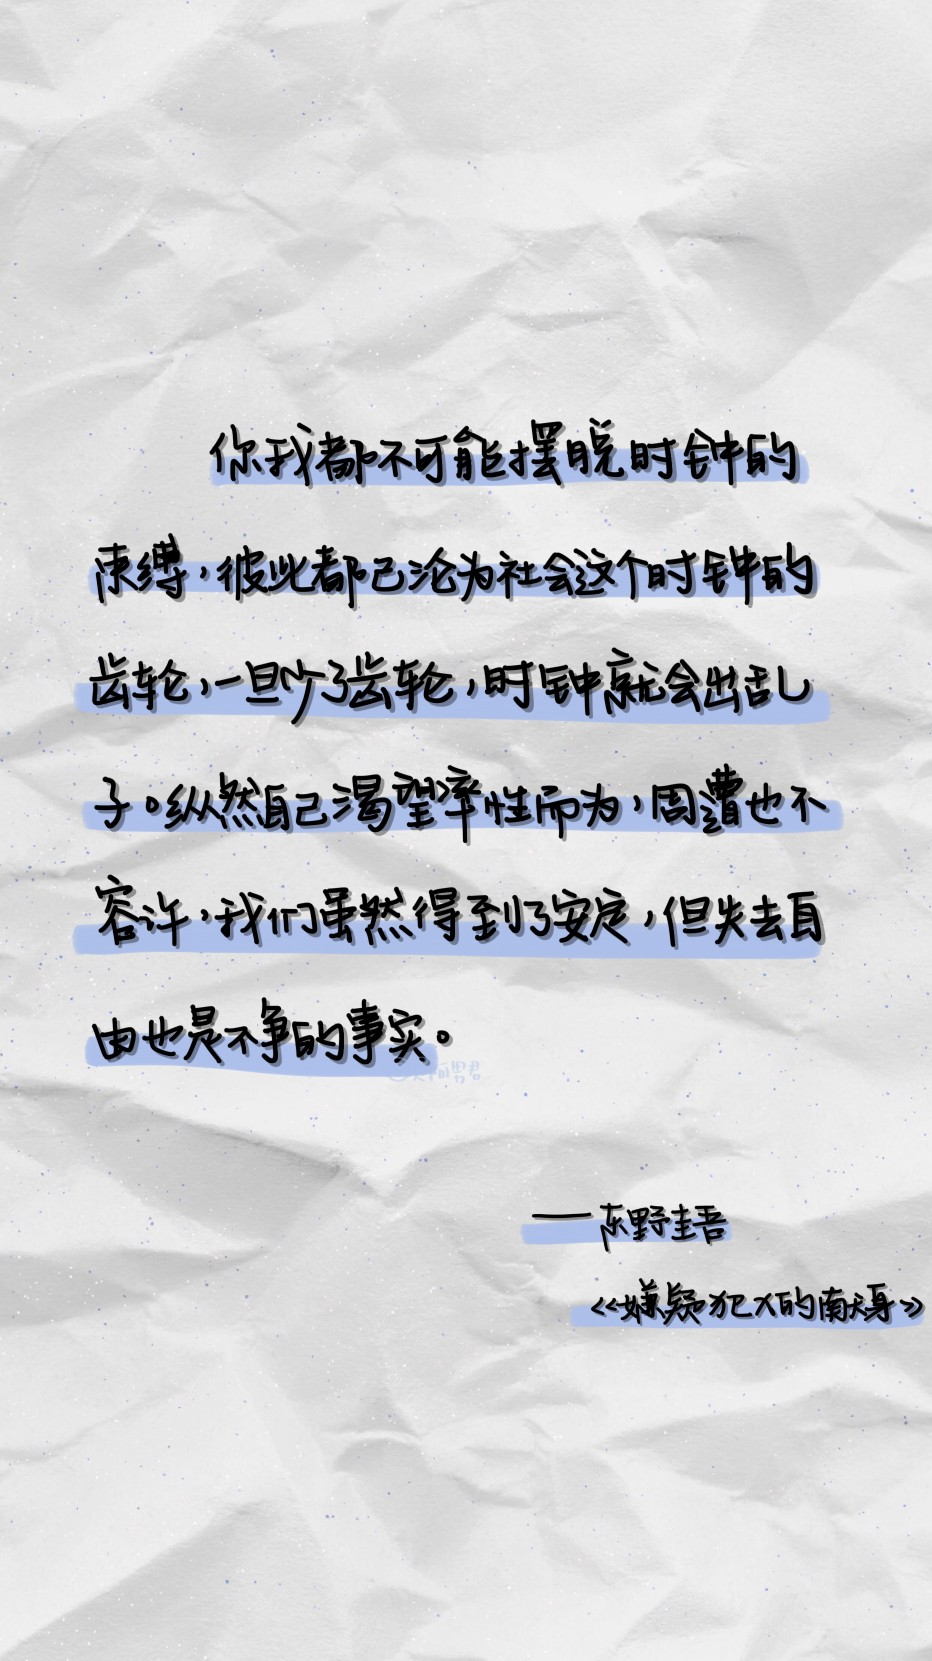 你我都不可能摆脱时钟的
束缚，彼此都已沦为社会这个时钟的
齿轮，一旦少了齿轮，时钟就会出乱
子。纵然自己渴望率性而为，周遭也不
容许，我们虽然得到了安定，但失去自
由也是不争的事实。
——东野圭吾
《嫌疑犯X的献身》